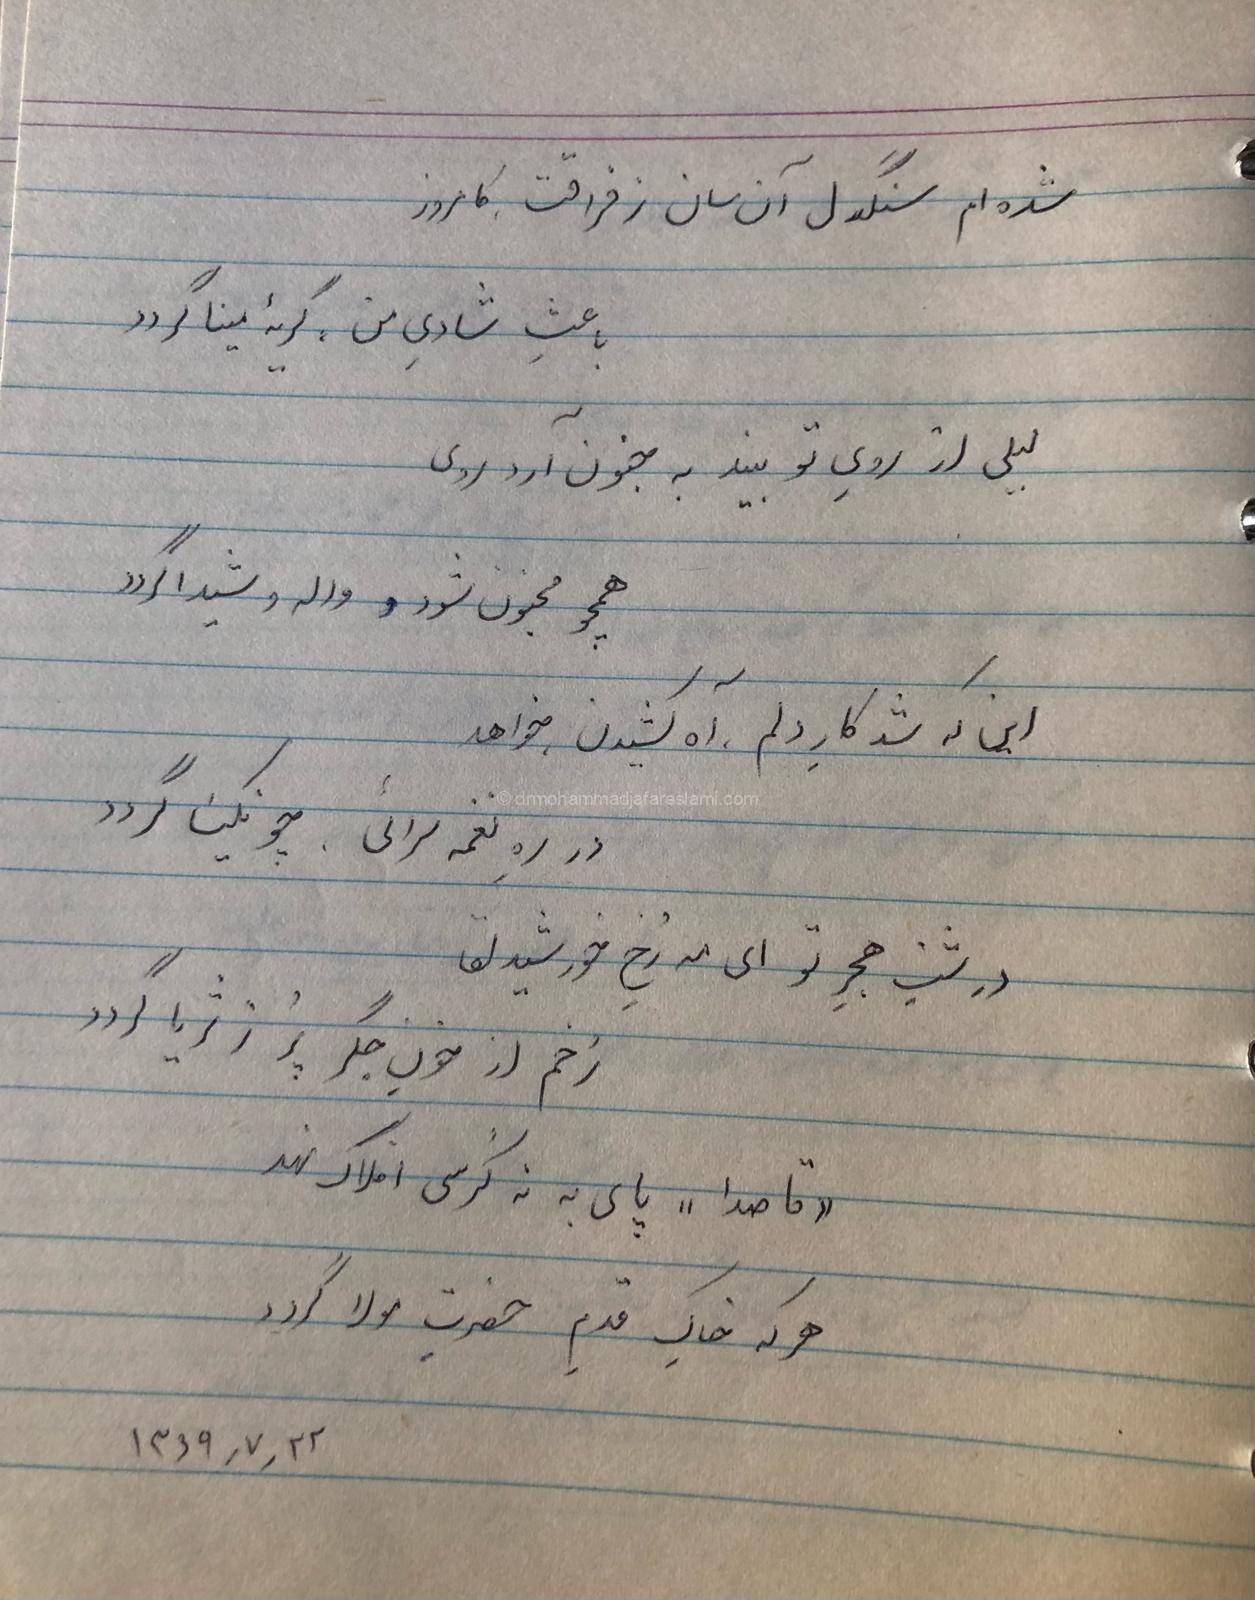 شده ام سنگدل آن سان ز فراقت، کامروز
باعثِ شادیِ من، گریۀ مینا گردد
لیلی ار رویِ تو بیند به مجنون آرد روی
همچو مجنون شود و واله و شیدا گردد
این که شد کارِ دلم، آه کشیدن، خواهد
در رهِ نغمه سرائی، چو نکیسا گردد
در شبِ هجرِ تو ای مه رُخِ خورشید لقا
رُخم از خونِ جگر پُر ز ثریا گردد
«قاصدا» پای به نه کُرسی افلاک نهد
هر که خاکِ قدمِ حضرتِ مولا گردد
۱۳۶۹٫۷٫۲۲
© drmohammadjafareslami.com